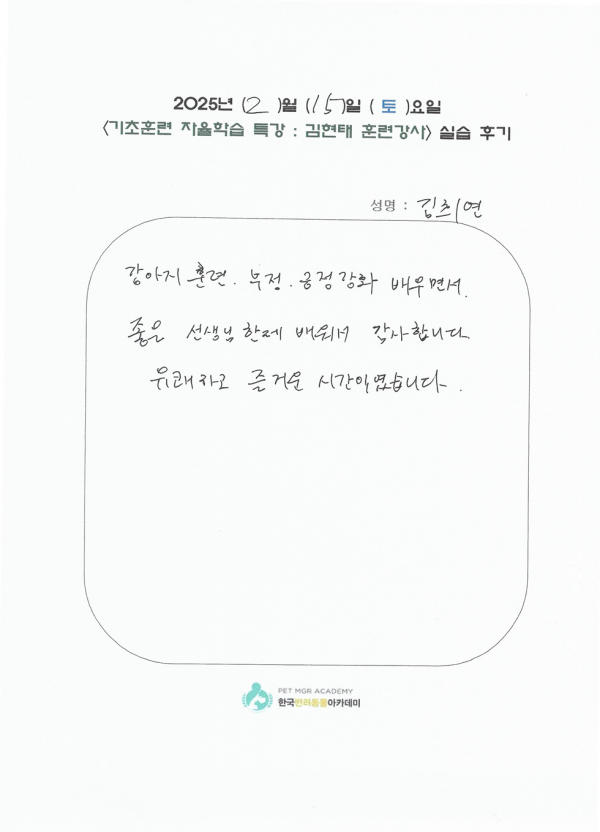 2025년 ( 2 )월 ( 15 )일 ( 토 )요일
<기초훈련 자율학습 특강 : 김현태 훈련강사> 실습 후기
성명 : 김희연
강아지 훈련. 부정. 긍정강화 배우면서.
좋은 선생님한테 배워서 감사합니다
유쾌하고 즐거운 시간이였습니다.
PET MGR ACADEMY
한국반려동물아카데미